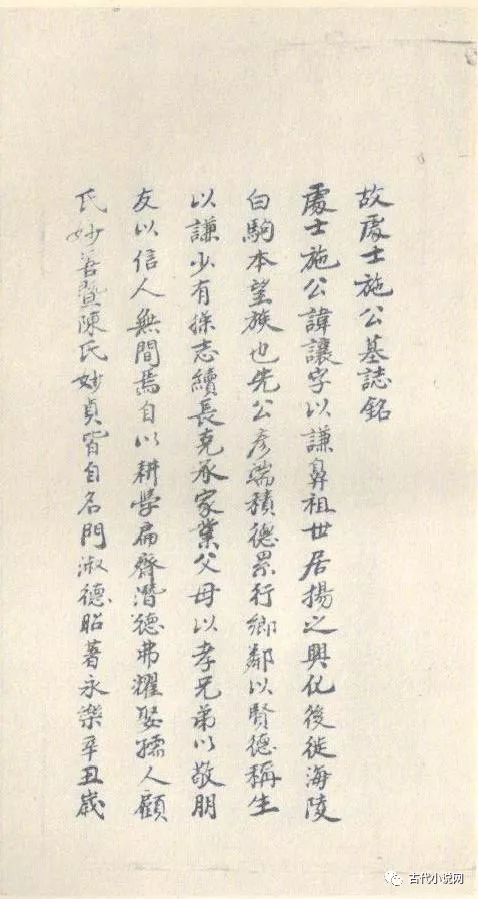 故處士施公墓誌銘
處士施公諱讓字以謙鼻祖世居揚之興化後徙海陵
白駒本望族也先公彥端積德累行鄉鄰以賢德稱生
以謙少有操志續長克承家業父母以孝兄弟以敬朋
友以信人無間焉自以耕學扁齋潛德弗耀娶孺人顧
氏妙善暨陳氏妙貞皆自名門淑德昭著永樂辛丑歲
古代小说网